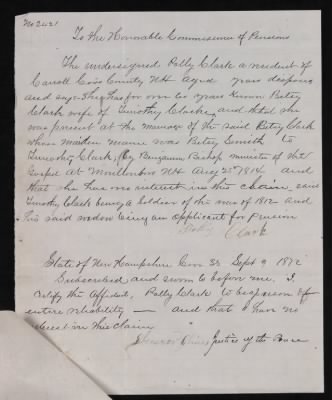 No 2421
To the Honorable Commissioner of Pensions
The undersigned Polly Clark a resident of
Carroll County NH aged years deposes
and says she has for years known Betsy
Clark wife of Timothy Clark, and that she
was present at the marriage of the said Betsy Clark
whose maiden name was Betsey Smith to
Timothy Clark, by Benjamin Bishop minister of the
Gospel At Moultonboro NH Aug 25th 1814 and
that she has no interest in this claim, said
Timothy Clark being a Soldier of the war of 1812 and
his said widow being an applicant for pension
Polly Clark
State of New Hampshire Carroll SS Sept 9 1872
Subscribed and sworn to before me. I
certify the Affiant, Polly Clark to be a person of
entire reliability — and that I have no
interest in this claim
Justice of the Peace